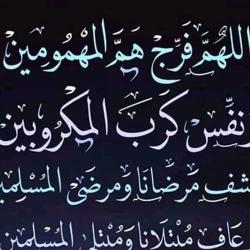 اللهُمَّ فَرِّجْ هَمَّ المَهْمُومِينَ
نَفِّسْ كَرْبَ المَكْرُوبِينَ
شفِ مَرْضَانَا وَمَرْضَى المُسْلِمِ
عَافِ مُبْتَلَانَا وَمُبْتَلَى المُسْلِمِين